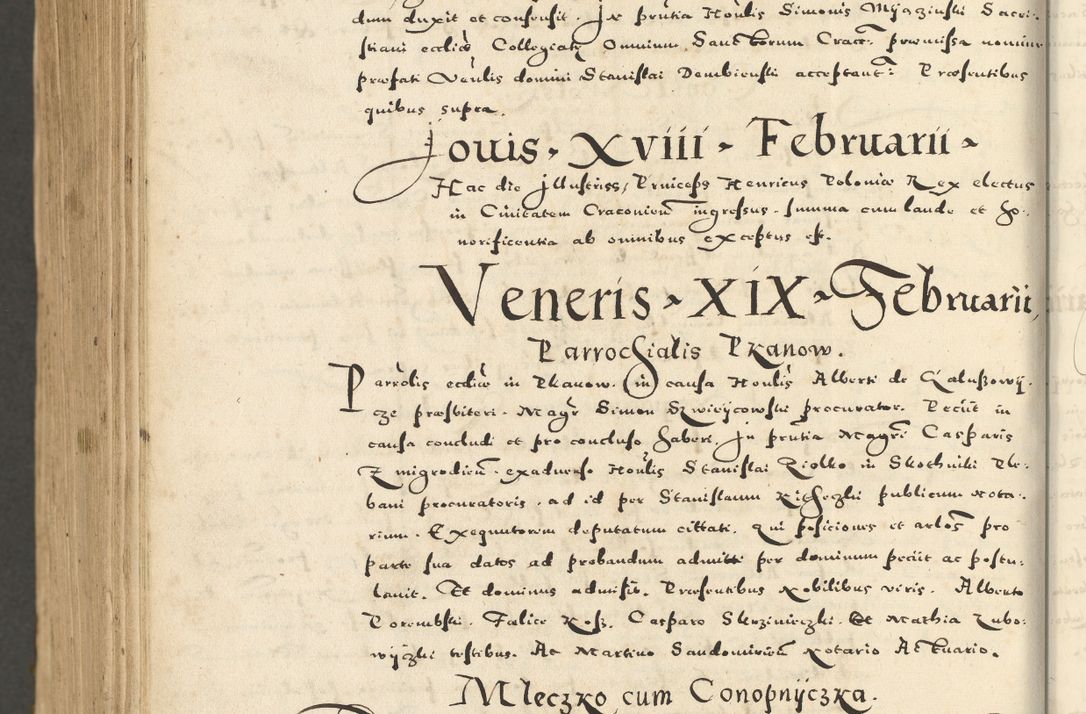 dum duxit et consensit. In pñtia Honlis Simonis Myszinski Sacri-
stiani ecclïæ Collegiatę Omnium Sanctorum Cracc: præmissa nomine
præfati Venlis domini Stanislai Dembienski acceptant: Præsentibus
quibus supra.
Jouis - XVIII - Februarii -
Hac die Jllustriss, Princeps Henricus Poloniæ Rex electus
in Ciuitatem Cracouien̄ ingressus. summa cum laude et ho-
norificentia ab omnibus exceptus est.
Veneris - XIX - Februarii,
Parrochialis Pkanow.
Parrolis ecclïæ in Pkanow. (in) causa Honlis Alberti de
cze præsbiteri. Magr Simon procurator. Peciit in
causa concludi et pro concluso haberi. In pñtia Magri Casparis
Zmigrodien̄. exaduerso Honlis Stanislai Ziolko in Skothniki Ple-
bani procuratoris. ad id per Stanislaum publicum Nota-
rium. Exequutorem deputatum cittati. Qui posiciones et arlos pro
parte sua datos ad probandum admitti per dominum peciit ac postu-
lauit. Et dominus admisit. Præsentibus Nobilibus viris. Alberto
Porembski. Felice Kosz. Casparo Skrzinieczki. Et Mathia Zubo-
wijczki testibus. Ac Martino Sandomirien̄ Notario Actuario.
Mleczko cum Conopnijczka.